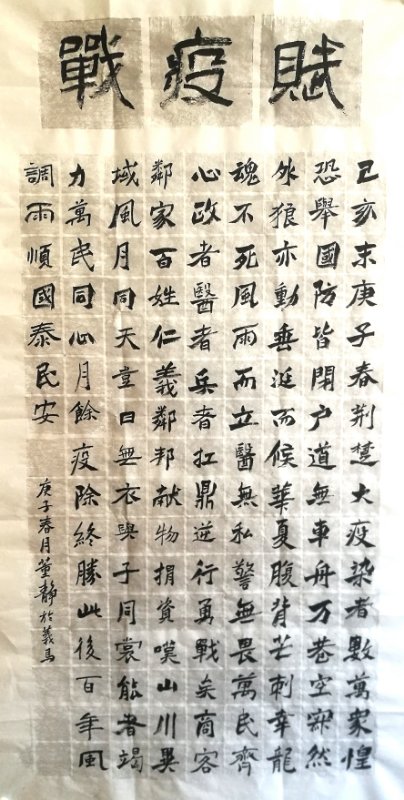 戰疫賦
己亥末庚子春荆楚大疫染者數萬家惶
恐舉國防皆閉户道無車舟万巷空寂然
外狼亦動垂涎而候華夏腹背芒刺幸龍
魂不死風雨而立醫無私警無畏萬民齊
心政者醫者兵者扛鼎逆行勇戰矣商客
鄰家百姓仁義鄰邦献物捐資嘆山川異
域風月同天壹曰無衣與子同裳能者竭
力萬民同心月餘疫除終勝此後百年風
調雨順國泰民安
庚子春月董靜於義馬